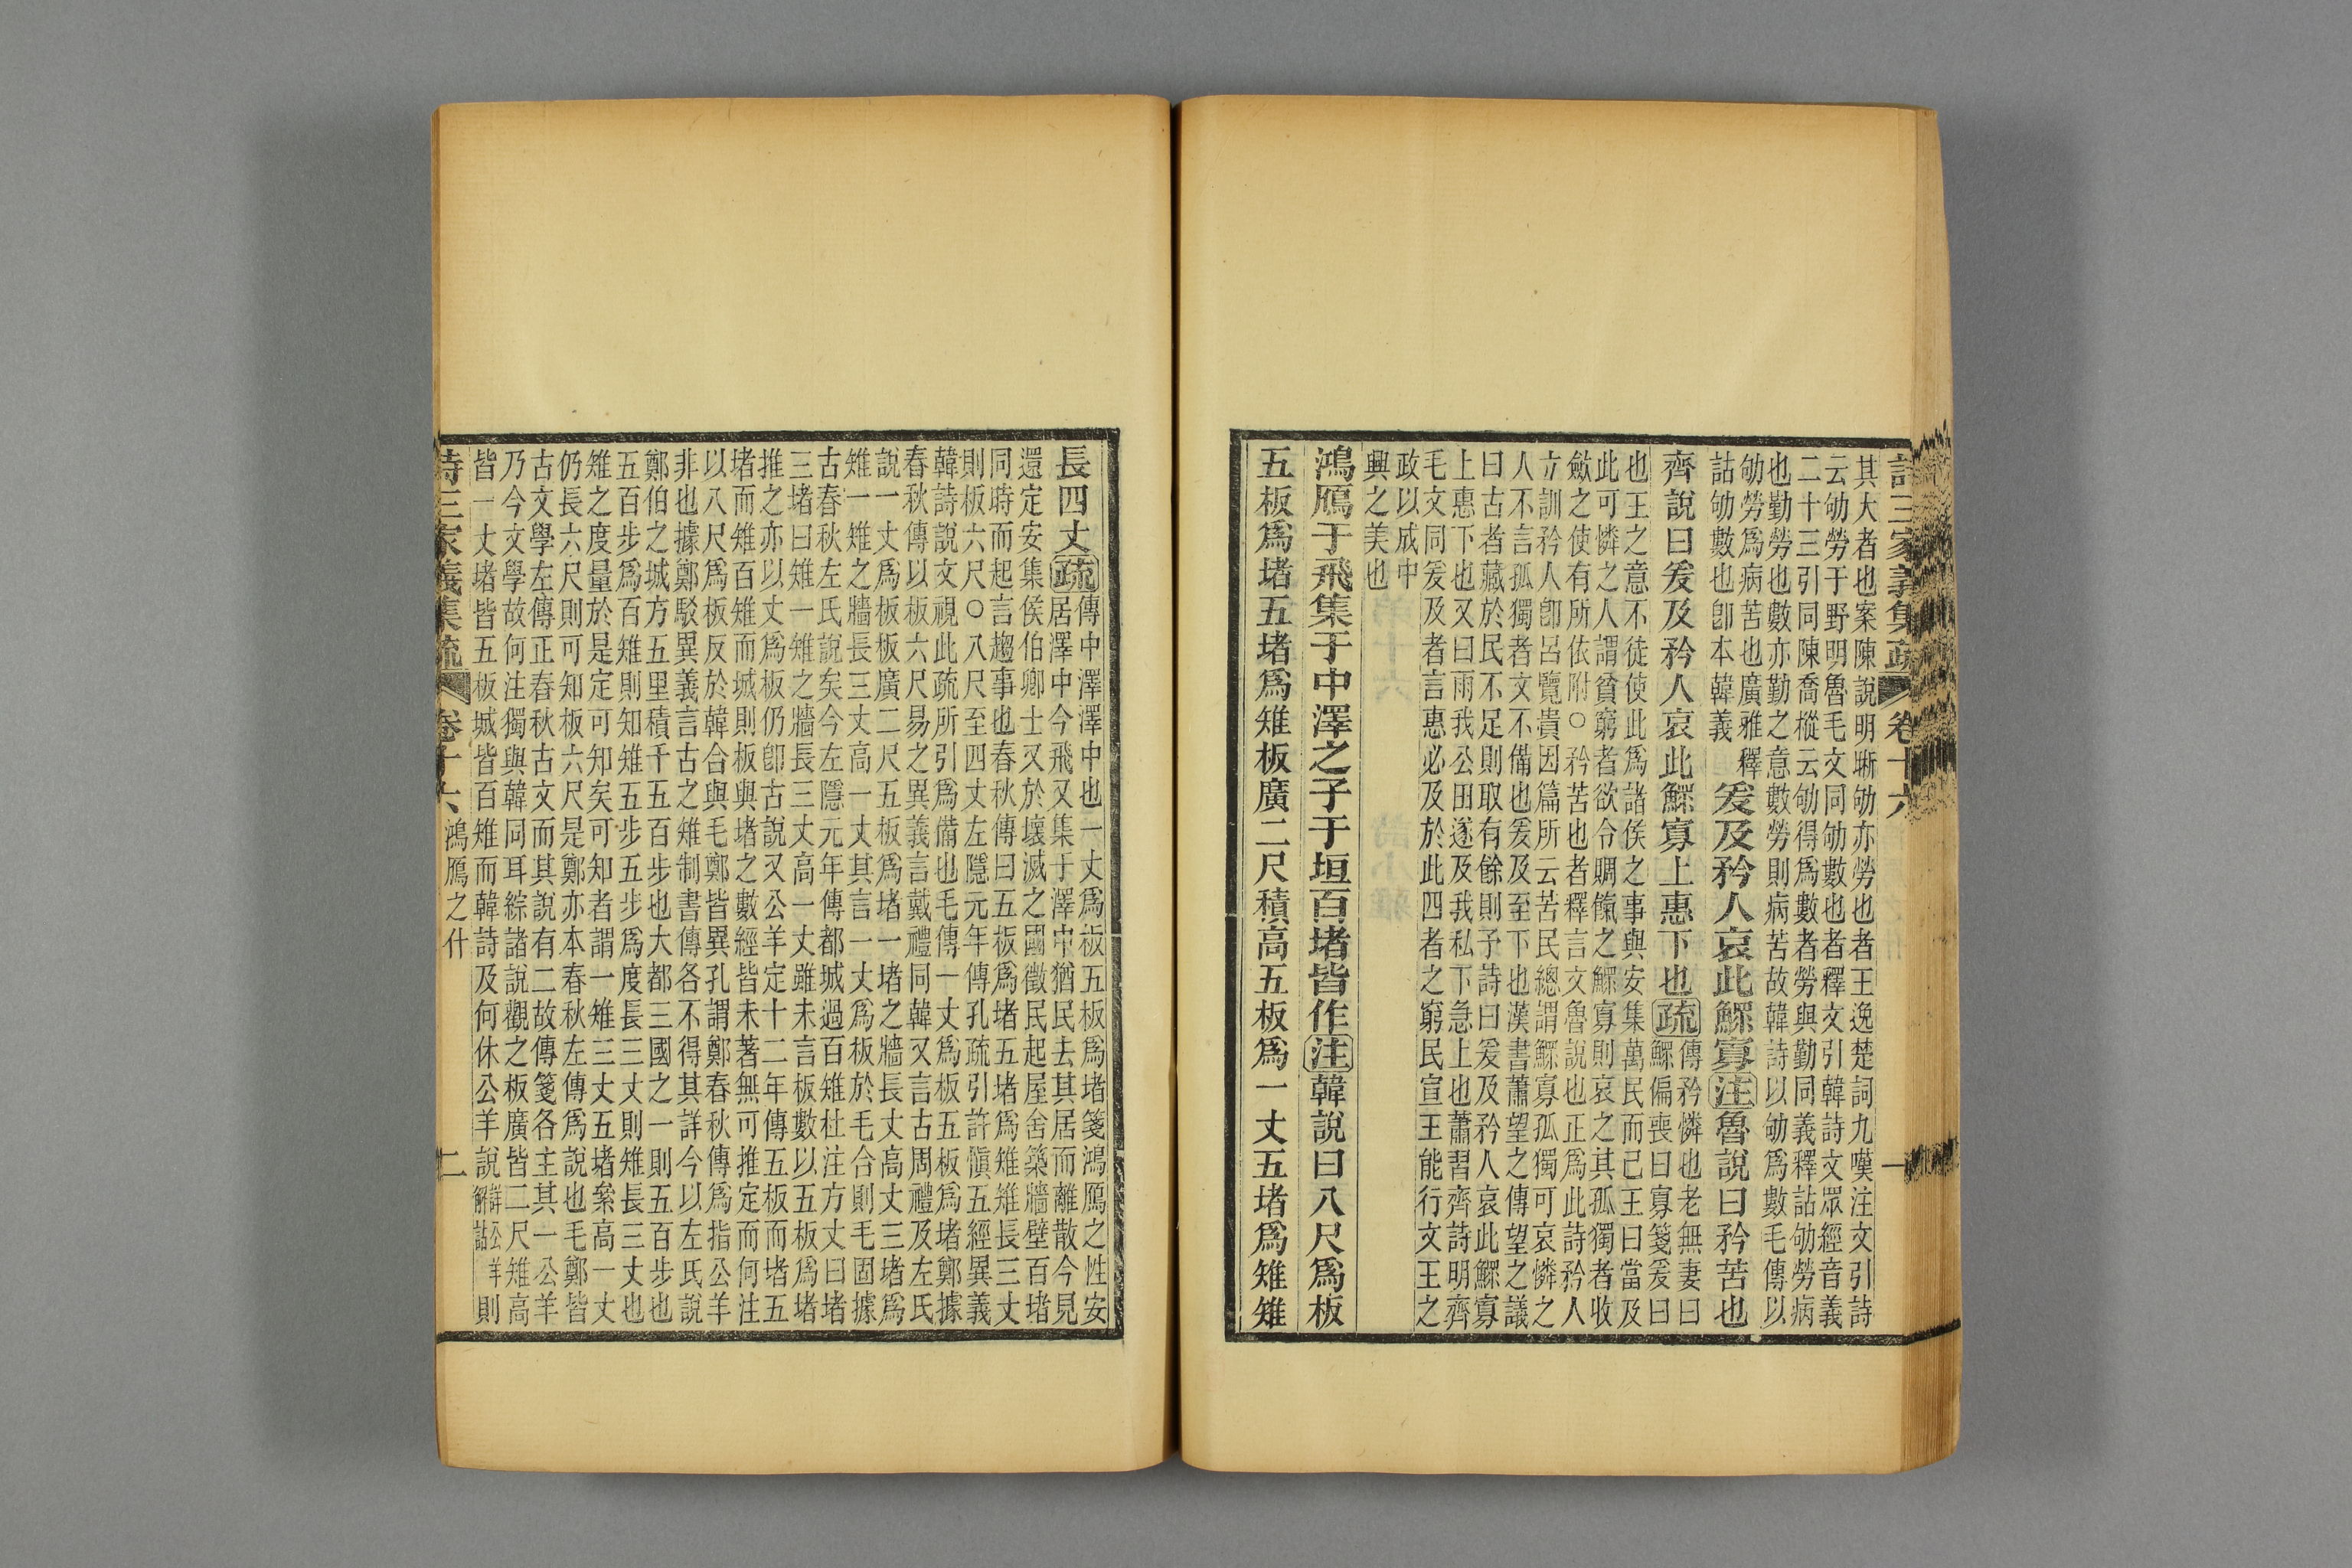 詩三家義集疏 卷十六 一
其大者也案陳說明晰劬亦勞也者王逸楚詞九嘆注文引詩
云劬勞于野明魯毛文同劬數也者釋文引韓詩文眾經音義
二十三引同陳喬樅云劬得爲數者勞與勤同義釋詁劬勞病
也勤勞也數亦勤之意數勞則病苦故韓詩以劬爲數毛傳以
劬勞爲病苦也廣雅釋
詁劬數也卽本韓義
爰及矜人哀此鰥寡注魯說曰矜苦也
齊說曰爰及矜人哀此鰥寡上惠下也疏
傳矜憐也老無妻曰
鰥偏喪曰寡箋爰曰
也王之意不徒使此爲諸侯之事與安集萬民而已王曰當及
此可憐之人謂貧窮者欲令賙餼之鰥寡則哀之其孤獨者收
斂之使有所依附○矜苦也者釋言文魯說也正爲此詩矜人
立訓矜人卽呂覽貴因篇所云苦民總謂鰥寡孤獨可哀憐之
人不言孤獨者文不備也爰及至下也漢書蕭望之傳望之議
曰古者藏於民不足則取有餘則予詩曰爰及矜人哀此鰥寡
上惠下也又曰雨我公田遂及我私下急上也蕭習齊詩明齊
毛文同爰及者言惠必及於此四者之窮民宣王能行文王之
政以成中
興之美也
鴻鴈于飛集于中澤之子于垣百堵皆作注韓說曰八尺爲板
五板爲堵五堵爲雉板廣二尺積高五板爲一丈五堵爲雉雉
長四丈疏
傳中澤澤中也一丈爲板五板爲堵箋鴻鴈之性安
居澤中今飛又集于澤中猶民去其居而離散今見
還定安集侯伯卿士又於壞滅之國徵民起屋舍築牆壁百堵
同時而起言趨事也春秋傳曰五板爲堵五堵爲雉雉長三丈
則板六尺○八尺至四丈左隱元年傳孔疏引許愼五經異義
韓詩說文視此疏所引爲備也毛傳一丈爲板五板爲堵鄭據
春秋傳以板六尺易之異義言戴禮同韓又言古周禮及左氏
說一丈爲板板廣二尺五板爲堵一堵之牆長丈高丈三堵爲
雉一雉之牆長三丈高一丈其言一丈爲板於毛合則毛固據
古春秋左氏說矣今左隱元年傳都城過百雉杜注方丈曰堵
三堵曰雉一雉之牆長三丈高一丈雖未言板數以五板爲堵
推之亦以丈爲板仍卽古說又公羊定十二年傳五板而堵五
堵而雉百雉而城則板與堵之數經皆未著無可推定而何注
以八尺爲板反於韓合與毛鄭皆異孔謂鄭春秋傳爲指公羊
非也據鄭駁異義言古之雉制書傳各不得其詳今以左氏說
鄭伯之城方五里積千五百步也大都三國之一則五百步也
五百步爲百雉則知雉五步五步爲度長三丈則雉長三丈也
雉之度量於是定可知矣可知者謂一雉三丈五堵案高一丈
仍長六尺則可知板六尺是鄭亦本春秋左傳爲說也毛鄭皆
古文學左傳正春秋古文而其說有二故傳箋各主其一公羊
乃今文學故何注獨與韓同耳綜諸說觀之板廣皆二尺雉高
皆一丈堵皆五板城皆百雉而韓詩及何休公羊說詳公羊解詁則
詩三家義集疏 卷十六 鴻鴈之什 二